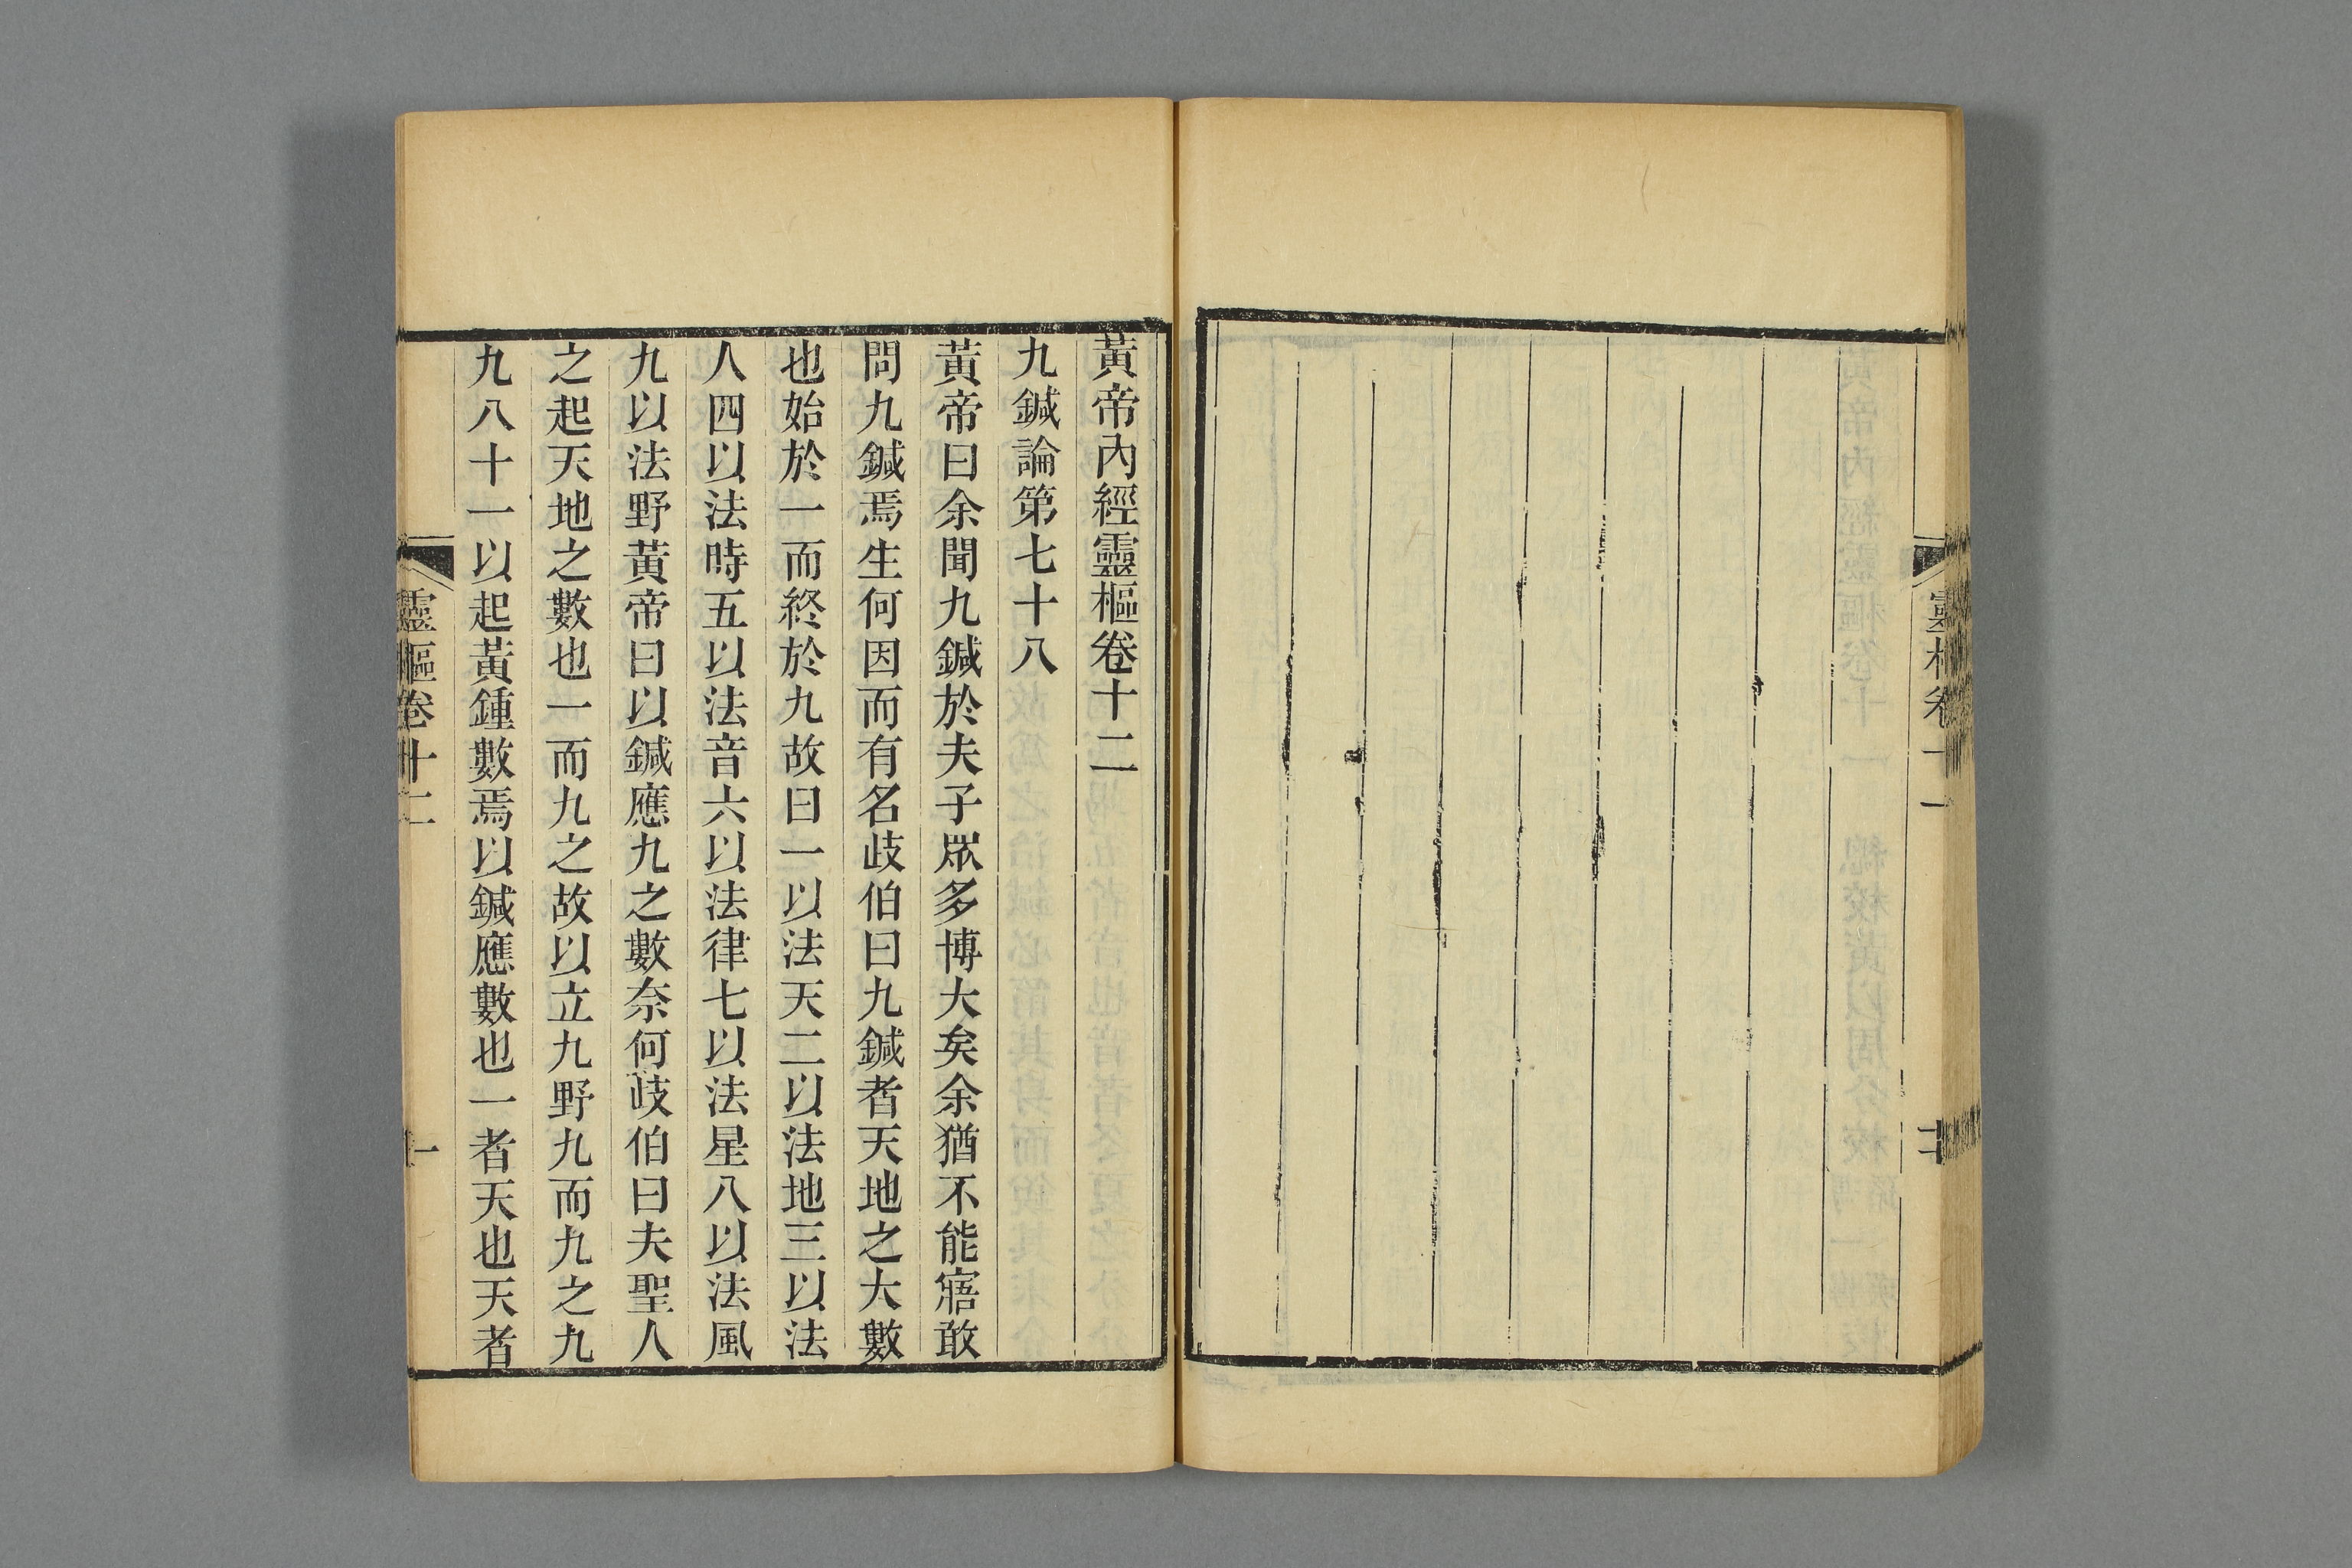 靈樞卷十一
黃帝內經靈樞卷十二
九鍼論第七十八
黃帝曰余聞九鍼於夫子眾多博大矣余猶不能寤敢
問九鍼焉生何因而有名歧伯曰九鍼者天地之大數
也始於一而終於九故曰一以法天二以法地三以法
人四以法時五以法音六以法律七以法星八以法風
九以法野黃帝曰以鍼應九之數奈何歧伯曰夫聖人
之起天地之數也一而九之故以立九野九而九之九
九八十一以起黃鍾數焉以鍼應數也一者天也天者
靈樞卷十二
一